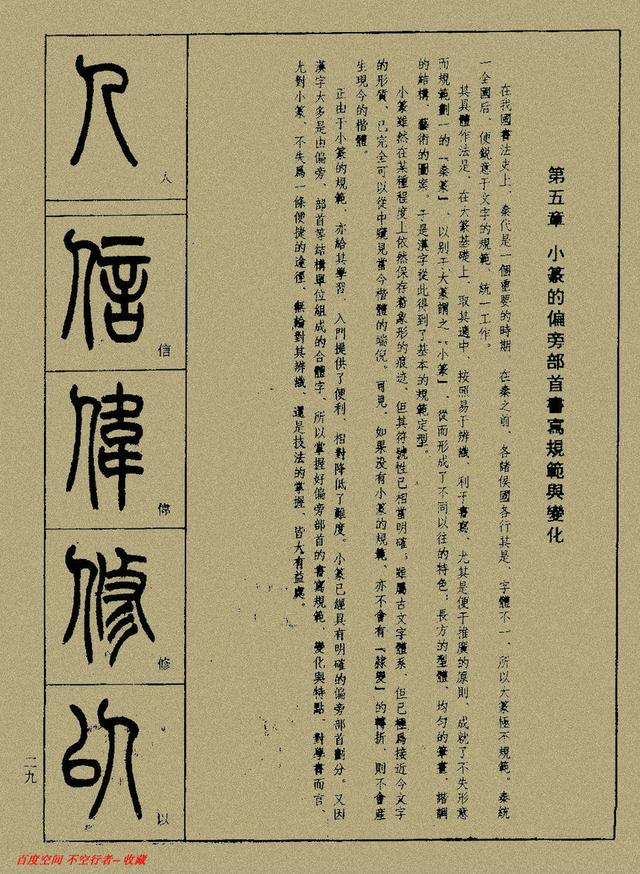 第五章　小篆的偏旁部首書寫規範與變化
在我國書法史上、秦代是一個重要的時期　在秦之前、各諸侯國各行其是、字體不一、所以大篆極不規範。秦統
一全國后、便銳意于文字的規範、統一工作。
其具體作法是、在大篆基礎上、取其適中、按照易于辨識、利于書寫、尤其是便于推廣的原則、成就了不失形意
而規範劃一的「秦篆」、以别于大篆謂之「小篆」、從而形成了不同以往的特色：長方的型體、均匀的筆畫、諧調
的結構、藝術的圖案。于是漢字從此得到了基本的規範定型。
小篆雖然在某種程度上依然保存着象形的痕迹、但其符號性已相當明確；雖屬古文字體系、但已極爲接近今文字
的形質、已完全可以從中窺見當今楷體的端倪。可見、如果没有小篆的規範、亦不會有「隸變」的轉折、則不會産
生現今的楷體。
正由于小篆的規範、亦給其學習、入門提供了便利、相對降低了難度。小篆已經具有明確的偏旁部首劃分。又因
漢字大多是由偏旁、部首等結構單位組成的合體字、所以掌握好偏旁部首的書寫規範、變化與特點、對學書而言、
尤對小篆、不失爲一條便捷的途徑、無論對其辨識、還是技法的掌握、皆大有益處。
人
人
信
信
偉
偉
修
修
以
以
二九
百度空间 不空行者-- 收藏